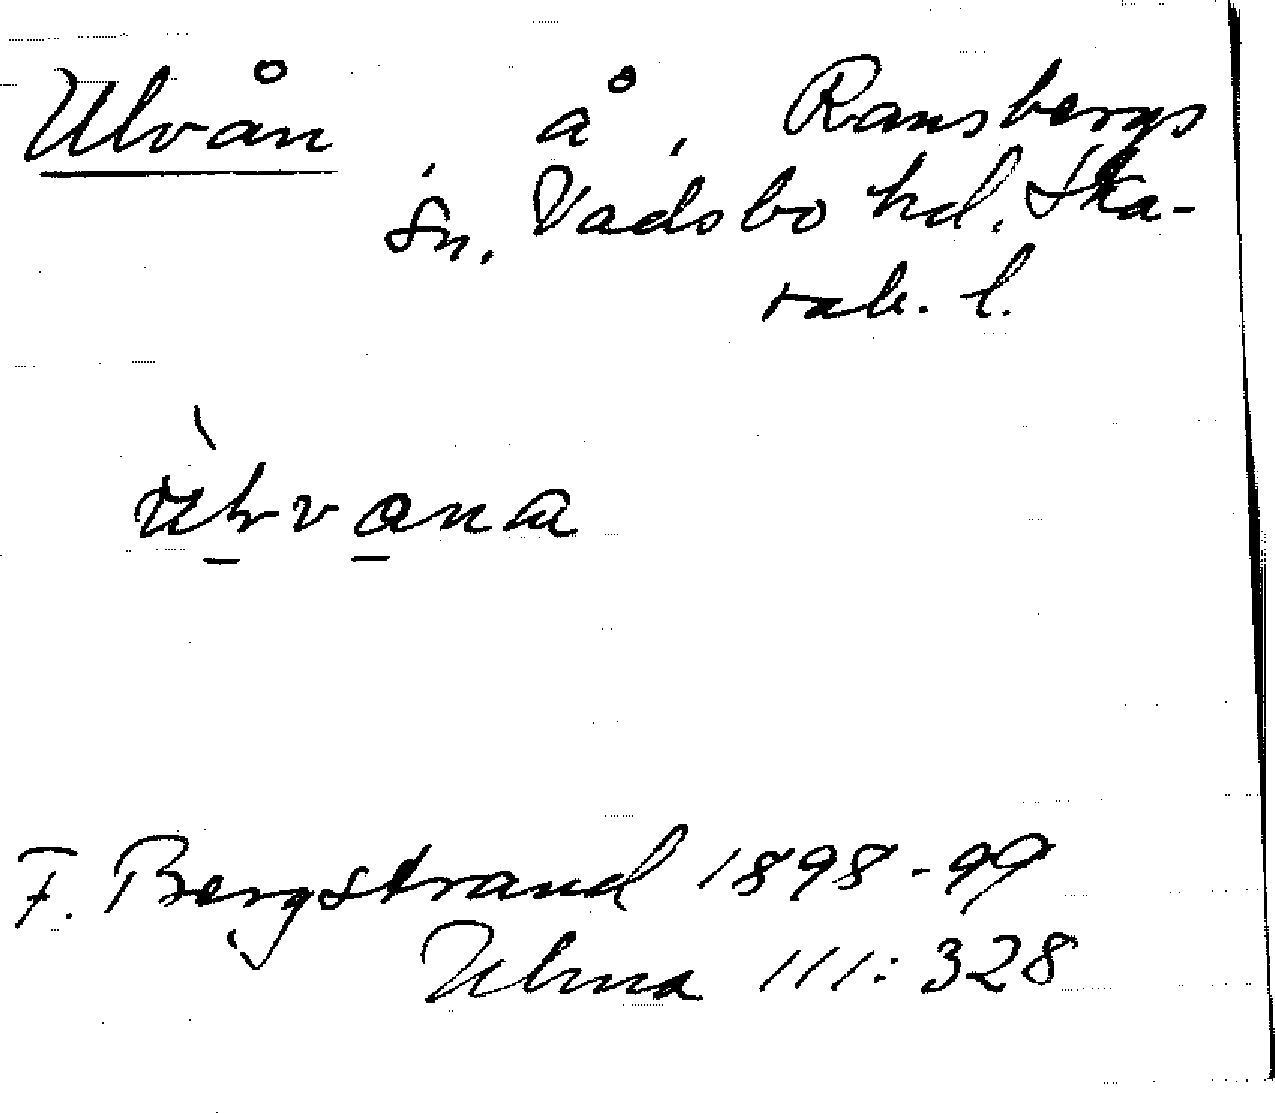 Ulvån å, Ransbergs
sn. Vadsbo hd. Ska-
rab. l.
F. Bergstrand 1898-99
Ulma 111:328